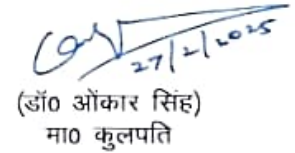 27/2/2025
(डॉ0 ओंकार सिंह)
मा0 कुलपति